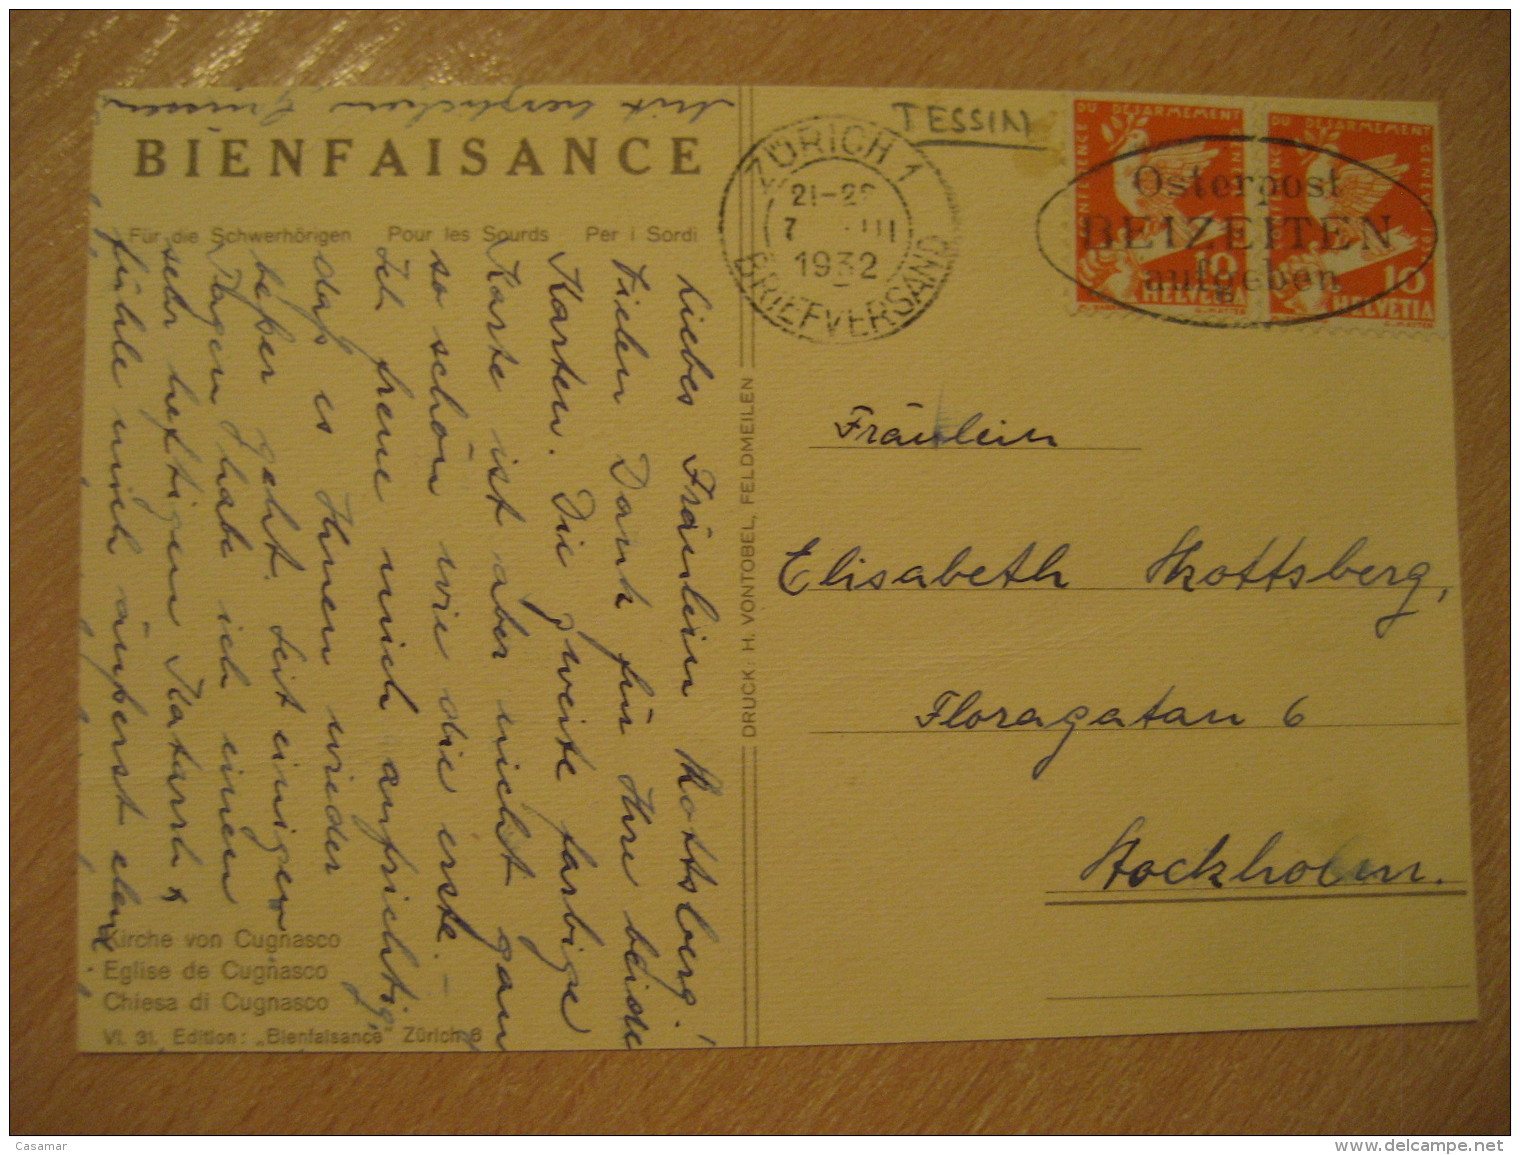 BIENFAISANCE
Für die Schwerhörigen Pour les Sourds Per i Sordi
Liebes Fräulein Skottsberg!
Vielen Dank für Ihre beiden
Karten. Die zweite farbige
Karte ist aber nicht ganz
so schön wie die erste. –
Ich freue mich aufrichtig,
daß es Ihnen wieder
beßer geht. Seit einigen
Tagen habe ich einen
sehr heftigen Katarrh &
fühle mich äußerst elend.
Mit herzlichen Grüssen
Kirche von Cugnasco
Eglise de Cugnasco
Chiesa di Cugnasco
VI. 31. Edition: „Bienfaisance" Zürich 6
DRUCK: H. VONTOBEL, FELDMEILEN
TESSIN
ZÜRICH 1
21-22
7 III
1932
BRIEFVERSAND
CONFERENCE DU DESARMEMENT GENEVE
10
HELVETIA
CONFERENCE DU DESARMEMENT GENEVE
10
HELVETIA
Osterpost
BEIZEITEN
aufgeben
Fräulein
Elisabeth Skottsberg,
Floragatan 6
Stockholm.
Casamar
www.delcampe.net